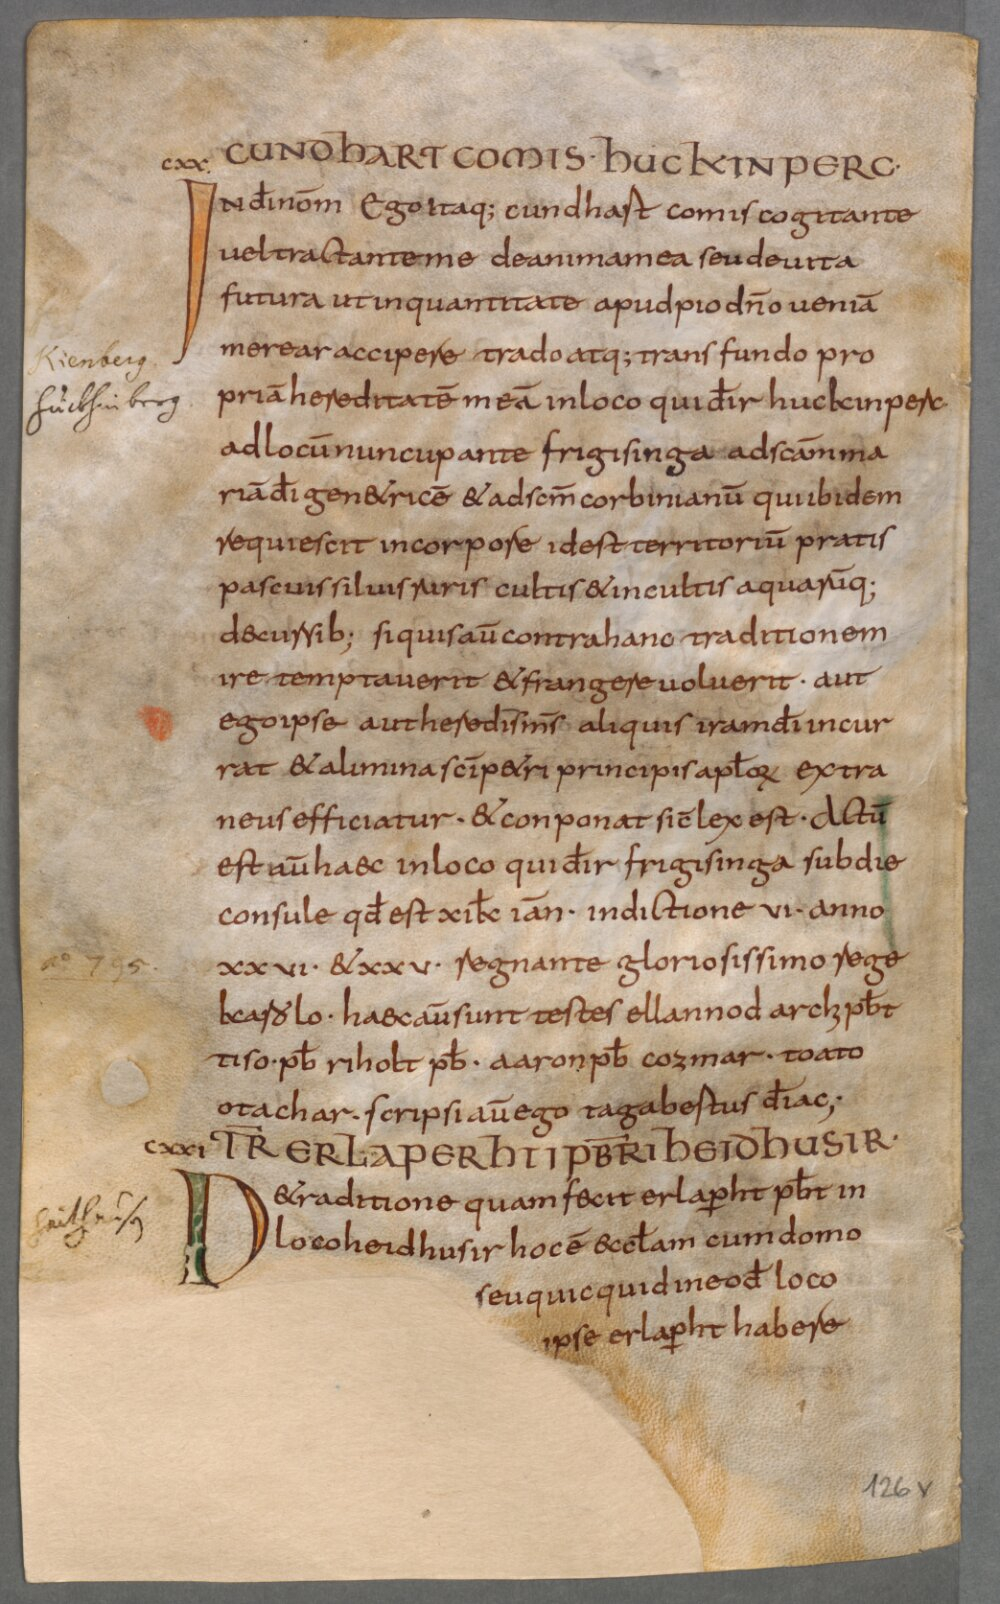 cxx. CUNDHART COMIS· HUCKINPERC·
IN d̄i nōm Ego itaq; cundhart comis cogitante
vel tractante me de anima mea seu de vita
futura ut in quantitate apud pio dn̄o veniā
merear accipere trado atq; transfundo pro
Kienberg.
priā hereditatē meā in loco qui dr̄ huckinperc
hückhinberg
ad locū nuncupante frigisinga ad scām ma
riā d̄i gen&ricē & ad scm̄ corbinianū qui ibidem
requiescit in corpore id est territoriū pratis
pascuis siluis ruris cultis & incultis aquarūq;
decursib; si quis aū contra hanc traditionem
ire temptaverit & frangere voluerit· aut
ego ipse aut heredis m̄s aliquis iram d̄i incur
rat & a limina sc̄i p&ri principis apl̄oꝝ extra
neus efficiatur· & conponat sic̄ lex est· Actū
est aū haec in loco qui dr̄ frigisinga sub die
consule qd̄ est xi kl̄ iān· indictione vi· anno
a° 795.
xxvi· & xxv· regnante gloriosissimo rege
karolo· haec aū sunt testes ellannod archipb̄t
tiso· pb̄ riholt pb̄· aaron pb̄ cozmar· toato
otachar· scripsi aū ego tagabertus d̄iac;·
cxxi TR̄ ERLAPERHTI PB̄RI HEIDHUSIR·
D&raditione quam fecit erlap̄ht pb̄t in
haithaus
loco heidhusir hoc ē eccl̄am cum domo
seu quicquid in eod̄ loco
ipse erlap̄ht habere
126 v